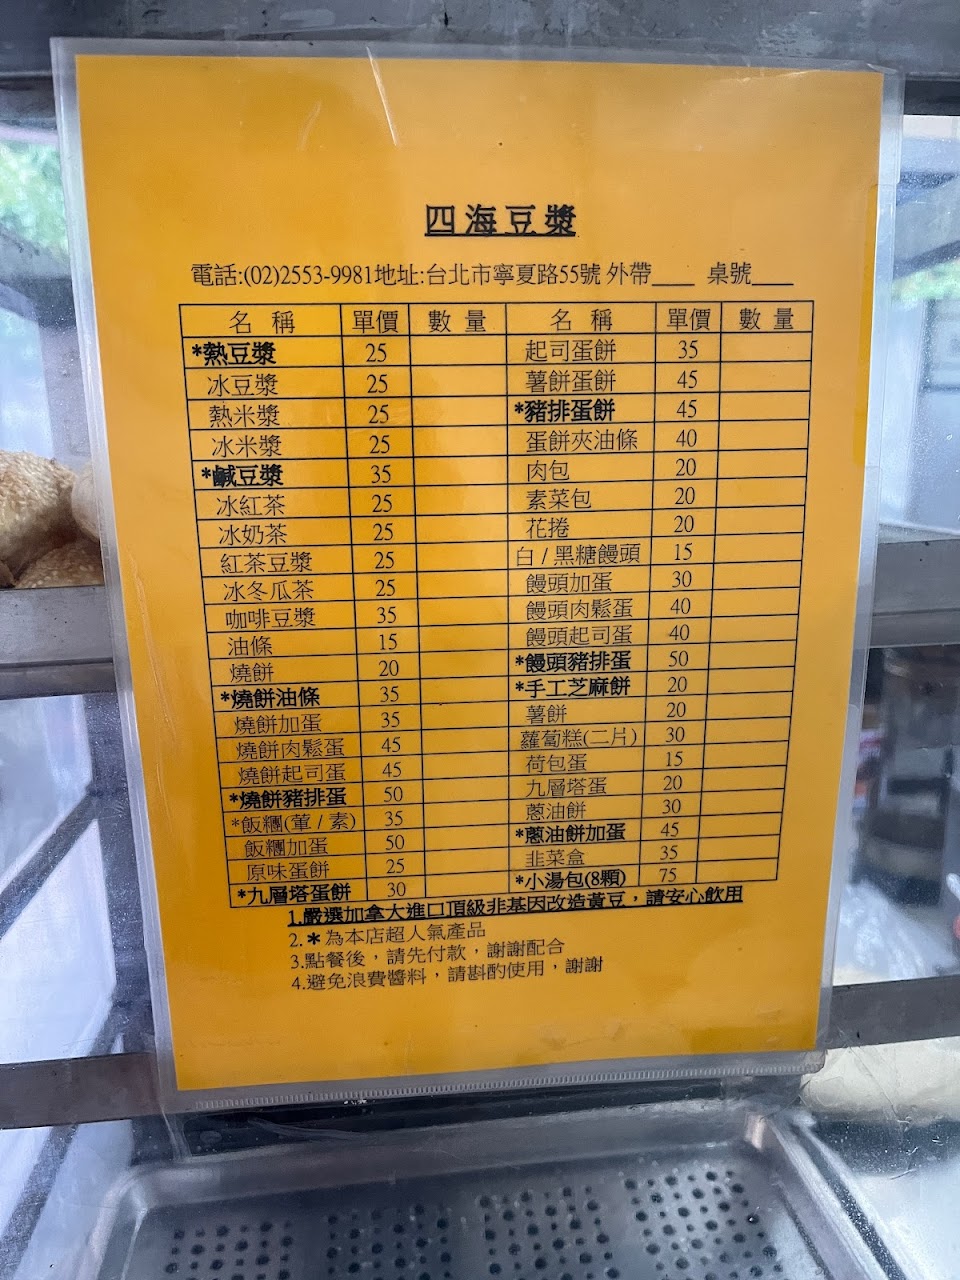 四海豆漿
電話:(02)2553-9981地址:台北市寧夏路55號 外帶____ 桌號____
名 稱 單價 數 量 名 稱 單價 數 量
*熱豆漿 25 起司蛋餅 35
冰豆漿 25 薯餅蛋餅 45
熱米漿 25 *豬排蛋餅 45
冰米漿 25 蛋餅夾油條 40
*鹹豆漿 35 肉包 20
冰紅茶 25 素菜包 20
冰奶茶 25 花捲 20
紅茶豆漿 25 白 / 黑糖饅頭 15
冰冬瓜茶 25 饅頭加蛋 30
咖啡豆漿 35 饅頭肉鬆蛋 40
油條 15 饅頭起司蛋 40
燒餅 20 *饅頭豬排蛋 50
*燒餅油條 35 *手工芝麻餅 20
燒餅加蛋 35 薯餅 20
燒餅肉鬆蛋 45 蘿蔔糕(二片) 30
燒餅起司蛋 45 荷包蛋 15
*燒餅豬排蛋 50 九層塔蛋 20
*飯糰(葷 / 素) 35 蔥油餅 30
飯糰加蛋 50 *蔥油餅加蛋 45
原味蛋餅 25 韭菜盒 35
*九層塔蛋餅 30 *小湯包(8顆) 75
1.嚴選加拿大進口頂級非基因改造黃豆，請安心飲用
2.＊為本店超人氣產品
3.點餐後，請先付款，謝謝配合
4.避免浪費醬料，請斟酌使用，謝謝